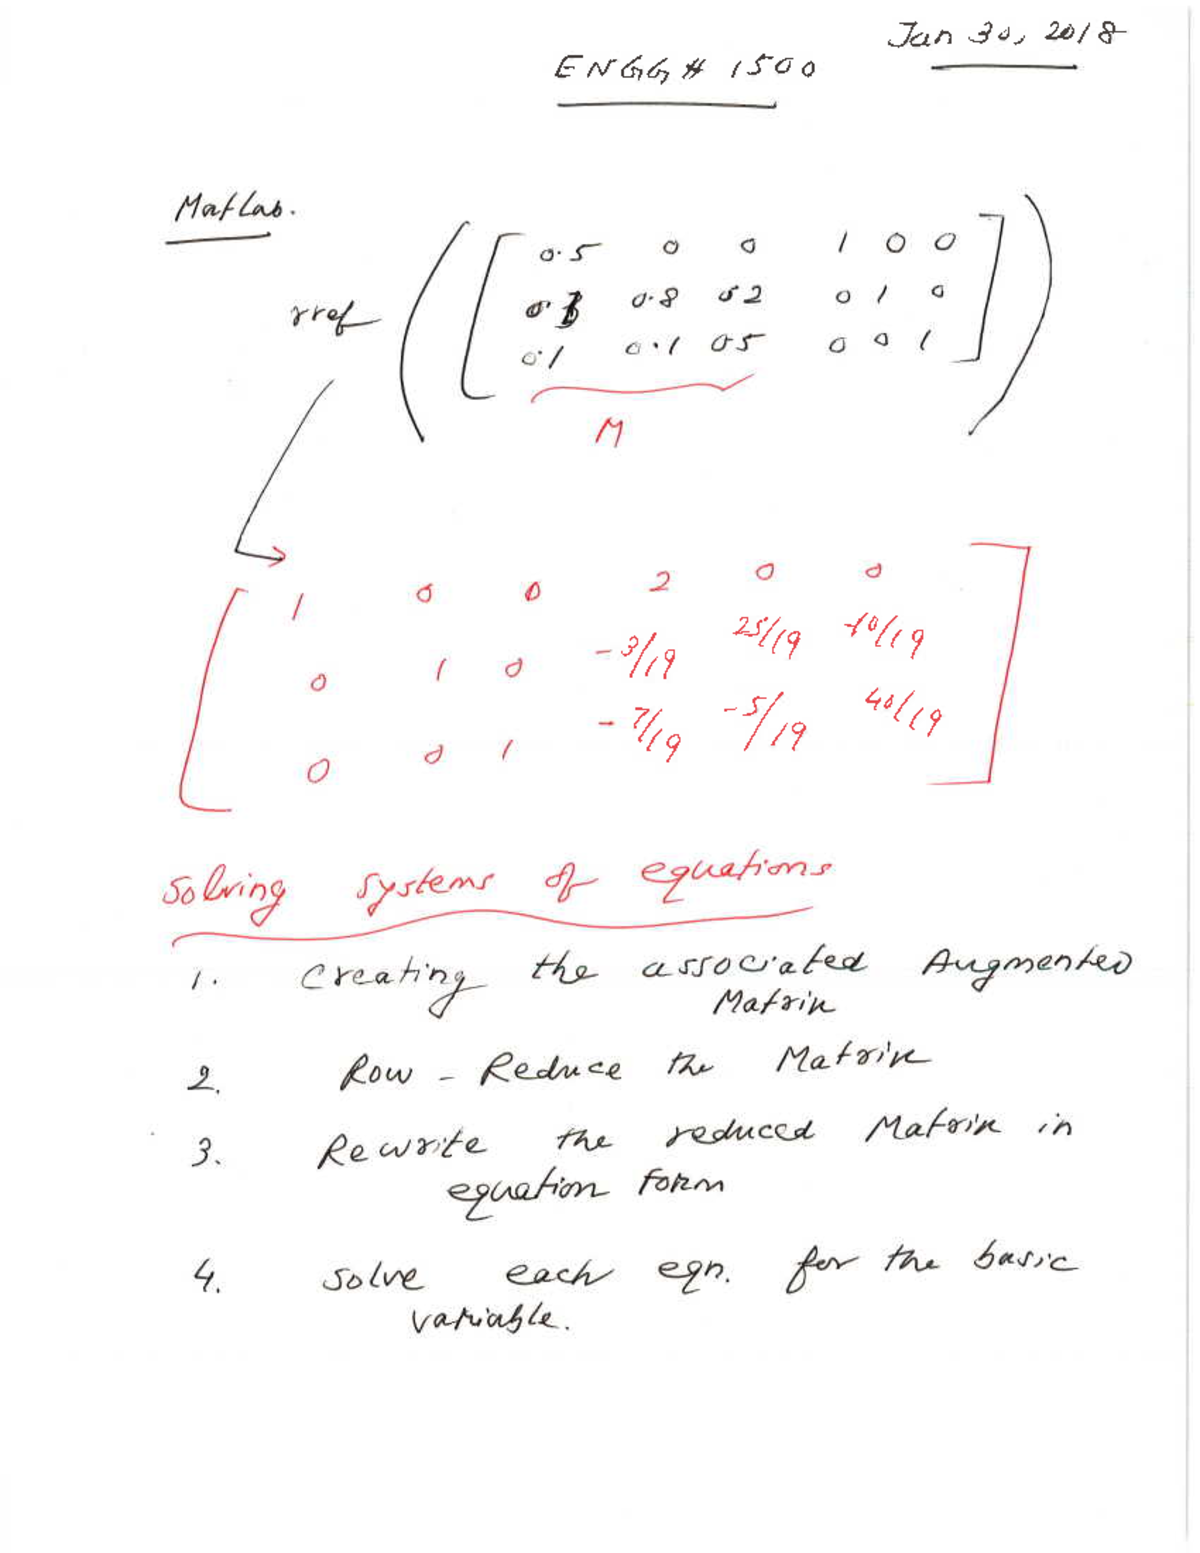 Jan 30, 2018
ENGG# 1500
Matlab.
0.5 0 0 1 0 0
rref 0.8 0.2 0 1 0
0.1 0.1 0.5 0 0 1
M
1 0 0 2 0 0
0 1 0 -3/19 25/19 -10/19
0 0 1 -7/19 -5/19 40/19
Solving systems of equations
1. Creating the associated Augmented
Matrix
2. Row - Reduce the Matrix
3. Rewrite the reduced Matrix in
equation Form
4. Solve each eqn. for the basic
variable.